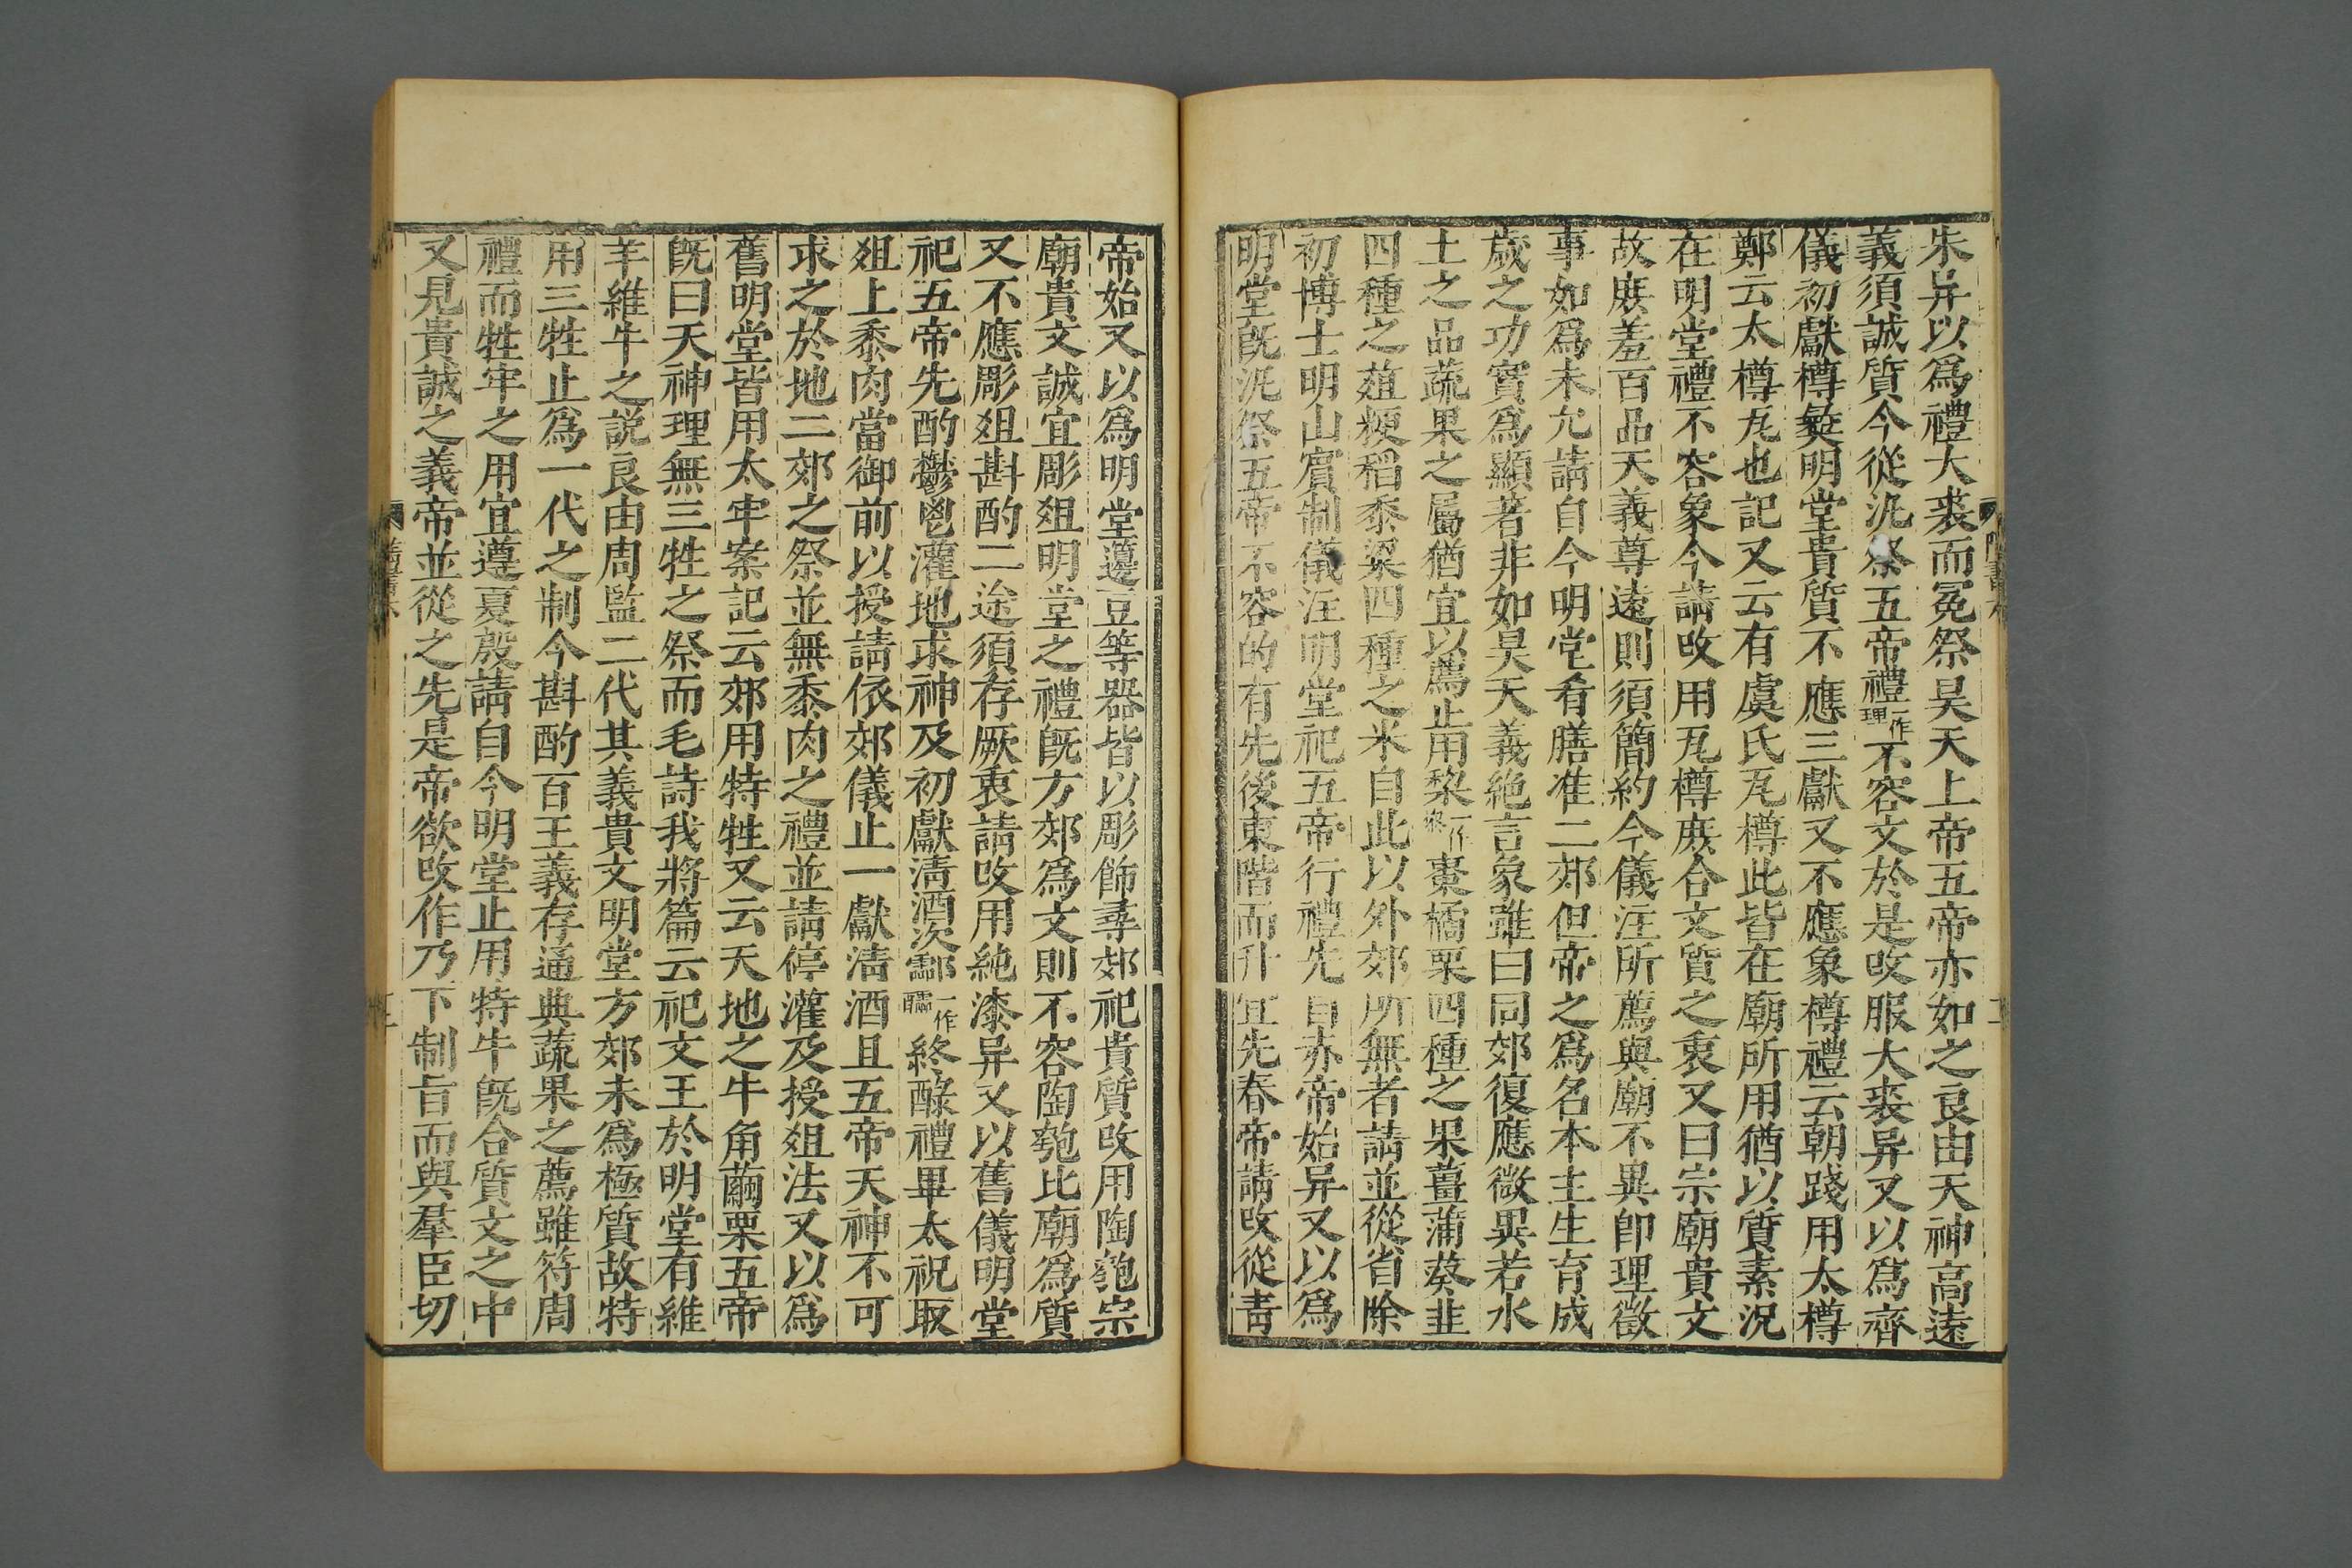 朱异以爲禮大裘而冕祭昊天上帝五帝亦如之良由天神高遠
義須誠質今從汎祭五帝禮一作理不容文於是改服大裘异又以爲齊
儀初獻樽彜明堂貴質不應三獻又不應象樽禮云朝踐用太樽
鄭云太樽瓦也記又云有虞氏瓦樽此皆在廟所用猶以質素況
在明堂禮不容象今請改用瓦樽庶合文質之衷又曰宗廟貴文
故庶羞百品天義尊遠則須簡約今儀注所薦與廟不異卽理徵
事如爲未允請自今明堂肴膳准二郊但帝之爲名本主生育成
歲之功實爲顯著非如昊天義絶言象雖曰同郊復應微異若水
土之品蔬果之屬猶宜以薦止用棃棗橘栗四種之果薑蒲葵韭
四種之葅粳稻黍粱四種之米自此以外郊所無者請並從省除
初博士明山賓制儀注明堂祀五帝行禮先自赤帝始异又以爲
明堂旣汎祭五帝不容的有先後東階而升宜先春帝請改從靑
帝始又以爲明堂籩豆等器皆以彫飾尋郊祀貴質改用陶匏宗
廟貴文誠宜彫俎明堂之禮旣方郊爲文則不容陶匏比廟爲質
又不應彫俎斟酌二途須存厥衷請改用純漆异又以舊儀明堂
祀五帝先酌鬱鬯灌地求神及初獻淸酒次酃一作醽終醁禮畢太祝取
俎上黍肉當御前以授請依郊儀止一獻淸酒且五帝天神不可
求之於地二郊之祭並無黍肉之禮並請停灌及授俎法又以爲
舊明堂皆用太牢案記云郊用特牲又云天地之牛角繭栗五帝
旣曰天神理無三牲之祭而毛詩我將篇云祀文王於明堂有維
羊維牛之說良由周監二代其義貴文明堂方郊未爲極質故特
用三牲止爲一代之制今斟酌百王義存通典蔬果之薦雖符周
禮而牲牢之用宜遵夏殷請自今明堂止用特牛旣合質文之中
又見貴誠之義帝並從之先是帝欲改作乃下制旨而與羣臣切